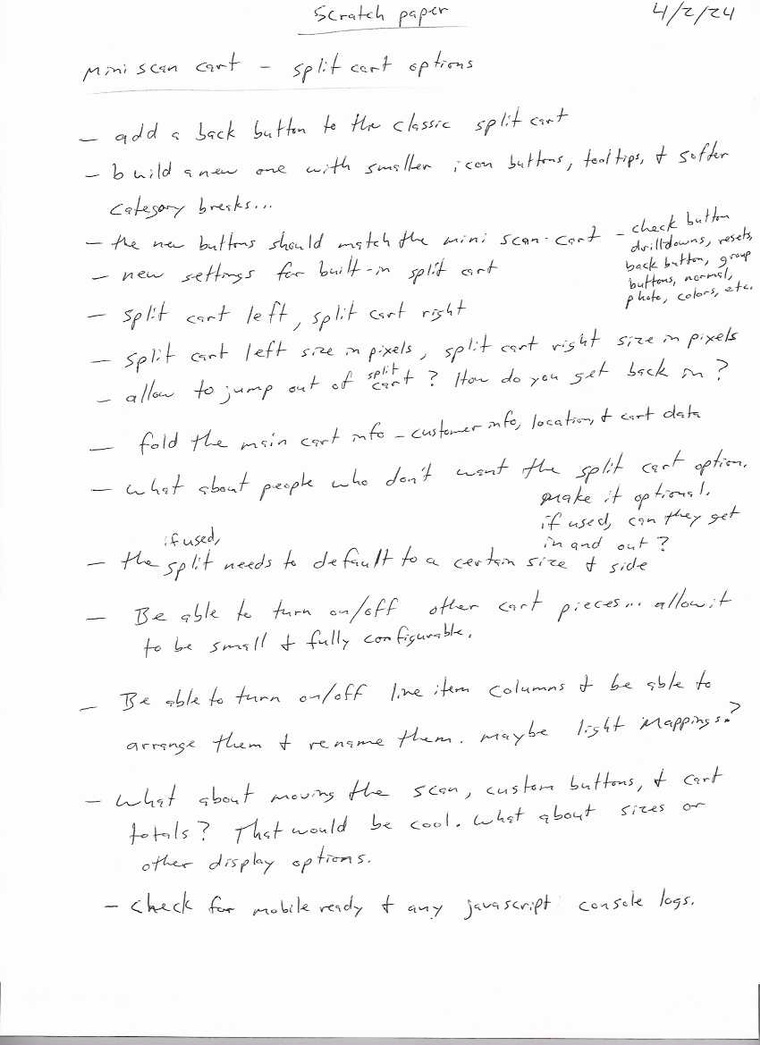 Scratch paper
4/2/24
Mini scan cart - split cart options
- add a back button to the classic split cart
- build a new one with smaller icon buttons, tool tips, & softer
category breaks...
- the new buttons should match the mini scan cart - check button
drilldowns, resets,
back button, group
buttons, normal,
photo, colors, etc.
- new settings for built-in split cart
- split cart left, split cart right
- split cart left size in pixels, split cart right size in pixels
- allow to jump out of split cart? How do you get back in?
- fold the main cart info - customer info, location, & cart data
- what about people who don't want the split cart option.
make it optional.
if used, can they get
in and out?
- the if used, split needs to default to a certain size & side
- Be able to turn on/off other cart pieces... allow it
to be small & fully configurable.
- Be able to turn on/off line item columns & be able to
arrange them & rename them. maybe light mappings?
- what about moving the scan, custom buttons, & cart
totals? That would be cool. what about sizes or
other display options.
- check for mobile ready & any javascript console logs.